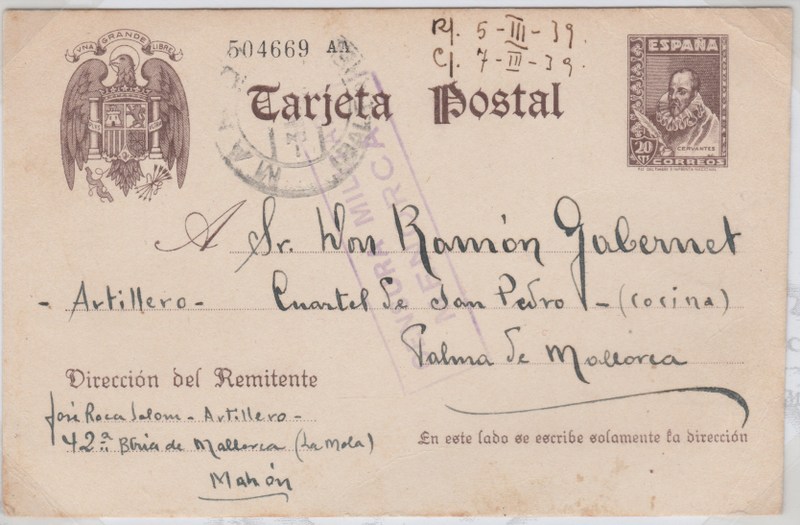 UNA GRANDE LIBRE
504669 AA
R/. 5-III-39.
C/. 7-III-39.
Tarjeta Postal
ESPAÑA
20
CERVANTES
CORREOS
MA
CENSURA MILITAR
MENORCA
A Sr. Don Ramón Gabernet
- Artillero - Cuartel de San Pedro - (cocina)
Palma de Mallorca
Dirección del Remitente
José Roca Salom - Artillero -
42ª Btria de Mallorca (La Mola)
Mahón
En este lado se escribe solamente la dirección